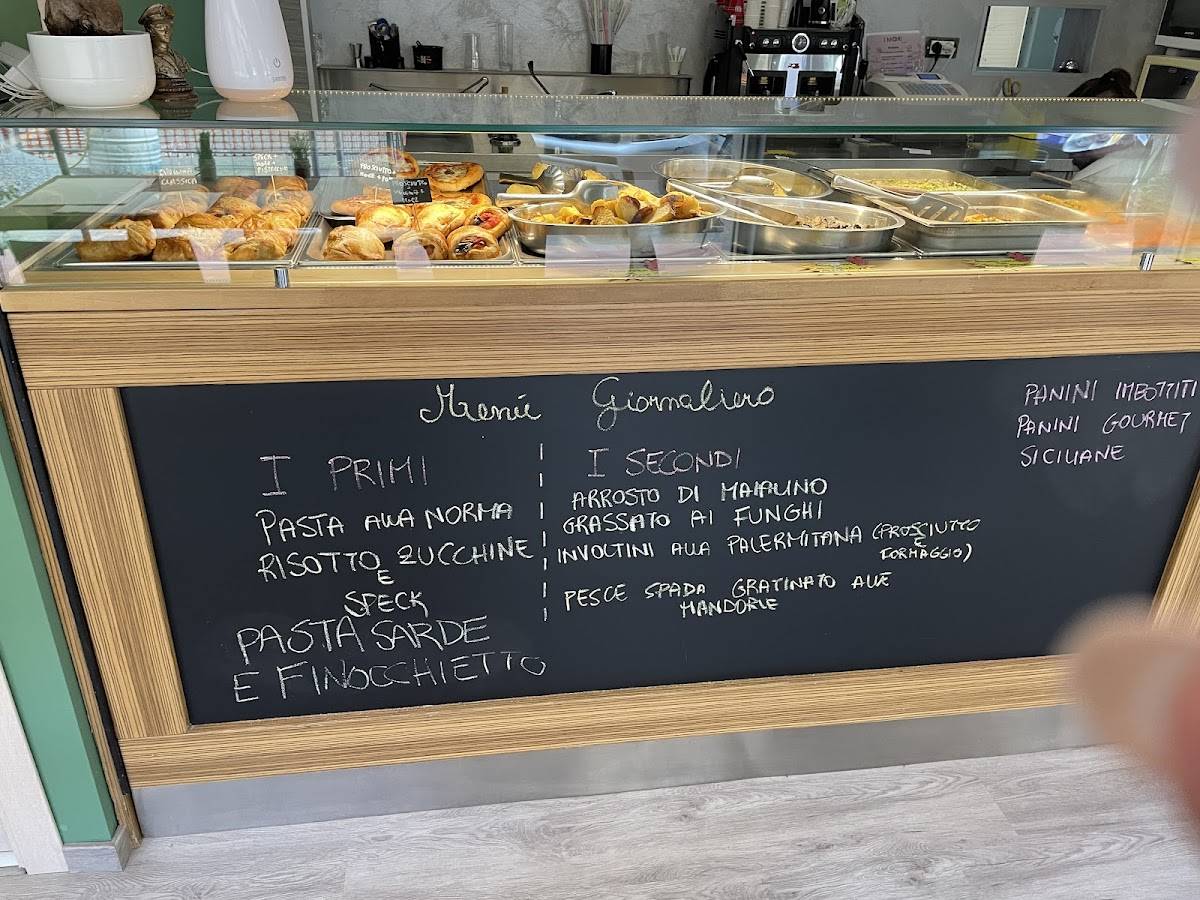 Menú Giornaliero
I PRIMI
PASTA ALLA NORMA
RISOTTO ZUCCHINE
E
SPECK
PASTA SARDE
E FINOCCHIETTO
I SECONDI
ARROSTO DI MAIALINO
GRASSATO AI FUNGHI
INVOLTINI ALLA PALERMITANA (PROSCIUTTO
E
FORMAGGIO)
PESCE SPADA GRATINATO ALLE
MANDORLE
PANINI IMBOTTITI
PANINI GOURMET
SICILIANE